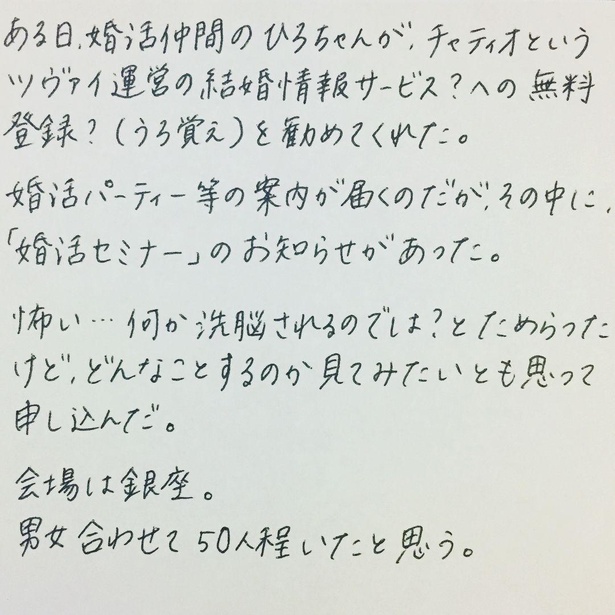 ある日、婚活仲間のひろちゃんが、チャティオという
ツヴァイ運営の結婚情報サービス？への無料
登録？（うろ覚え）を勧めてくれた。
婚活パーティー等の案内が届くのだが、その中に、
「婚活セミナー」のお知らせがあった。
怖い…何か洗脳されるのでは？とためらった
けど、どんなことするのか見てみたいとも思って
申し込んだ。
会場は銀座。
男女合わせて50人程いたと思う。